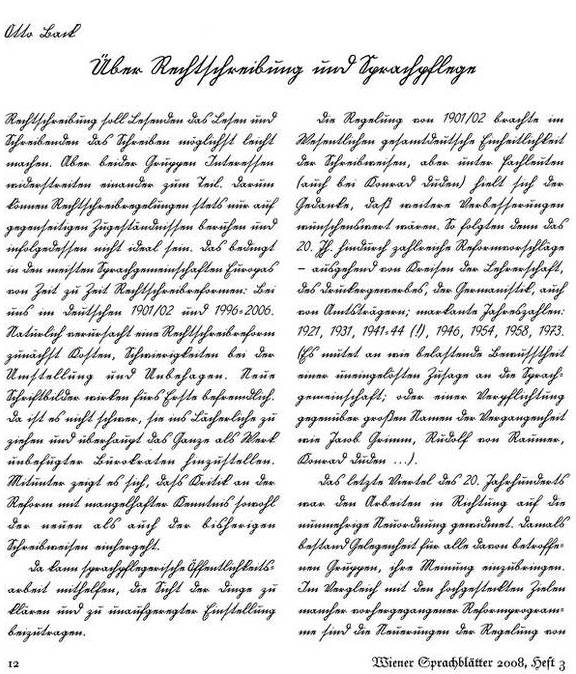 Otto Back
Über Rechtschreibung und Sprachpflege
Rechtschreibung soll Lesenden das Lesen und
Schreibenden das Schreiben möglichst leicht
machen. Aber beider Gruppen Interessen
widerstreiten einander zum Teil. Darum
können Rechtschreibregelungen stets nur auf
gegenseitigen Zugeständnissen beruhen und
infolgedessen nicht ideal sein. Das bedingt
in den meisten Sprachgemeinschaften Europas
von Zeit zu Zeit Rechtschreibreformen: Bei
uns im Deutschen 1901/02 und 1996-2006.
Natürlich verursacht eine Rechtschreibreform
zunächst Kosten, Schwierigkeiten bei der
Umstellung und Unbehagen. Neue
Schriftbilder wirken fürs Erste befremdlich.
Da ist es nicht schwer, sie ins Lächerliche zu
ziehen und überhaupt das Ganze als Werk
unbefugter Bürokraten hinzustellen.
Mitunter zeigt es sich, dass Kritik an der
Reform mit mangelhafter Kenntnis sowohl
der neuen als auch der bisherigen
Schreibweisen einhergeht.
Da kann sprachpflegerische Öffentlichkeits-
arbeit mithelfen, die Sicht der Dinge zu
klären und zu unaufgeregter Einstellung
beizutragen.
Die Regelung von 1901/02 brachte im
Wesentlichen gesamtdeutsche Einheitlichkeit
der Schreibweisen, aber unter Fachleuten
(auch bei Konrad Duden) hielt sich der
Gedanke, daß weitere Verbesserungen
wünschenswert wären. So folgten denn das
20. Jh. hindurch zahlreiche Reformvorschläge
– ausgehend von Kreisen der Lehrerschaft,
des Druckergewerbes, der Germanistik, auch
von Amtsträgern; markante Jahreszahlen:
1921, 1931, 1941-44 (!), 1946, 1954, 1958, 1973.
(Es mutet an wie belastende Bewusstheit
einer uneingelösten Zusage an die Sprach-
gemeinschaft; oder einer Verpflichtung
gegenüber großen Namen der Vergangenheit
wie Jacob Grimm, Rudolf von Raumer,
Konrad Duden ...).
Das letzte Viertel des 20. Jahrhunderts
war den Arbeiten in Richtung auf die
nunmehrige Neuordnung gewidmet. Damals
bestand Gelegenheit für alle davon betroffe-
nen Gruppen, ihre Meinung einzubringen.
Im Vergleich mit den hochgesteckten Zielen
mancher vorhergegangener Reformprogram-
me sind die Neuerungen der Regelung von
12
Wiener Sprachblätter 2008, Heft 3